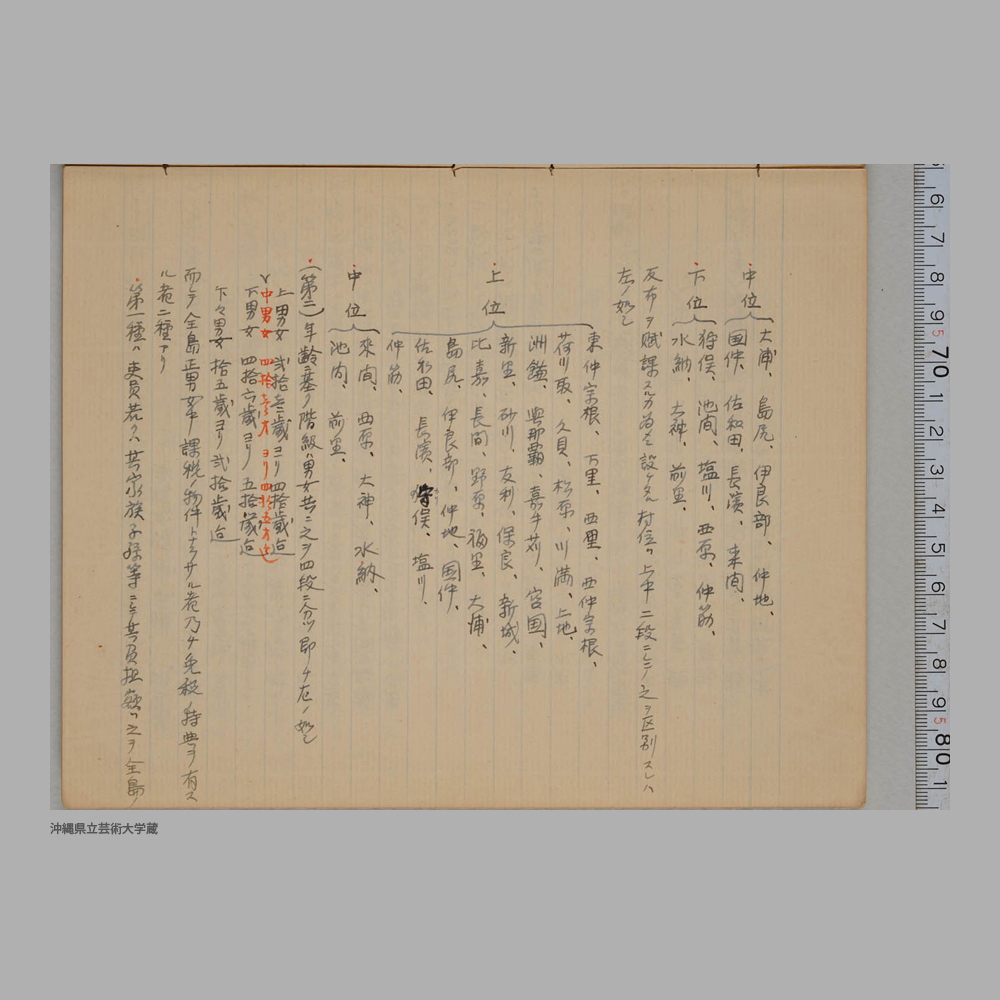 中位 大浦、島尻、伊良部、仲地、
国仲、佐和田、長濱、来間、
下位 狩俣、池間、塩川、西原、仲筋、
水納、大神、前里、
反布ヲ賦課スルカ為メ設ケタル村位ハ上中二段ニシテ之ヲ区別スレハ
左ノ如シ
上位 東仲宗根、下里、西里、西仲宗根、
荷川取、久貝、松原、川満、上地、
洲鎌、與那覇、嘉手苅、宮国、
新里、砂川、友利、保良、新城、
比嘉、長間、野原、福里、大浦、
島尻、伊良部、仲地、国仲、
佐和田、長濱、狩俣、塩川、
仲筋、
中位 来間、西原、大神、水納、
池間、前里、
(第二)年齢ニ基ク階級ハ男女共ニ之ヲ四段ニ分ツ即チ左ノ如シ
上男女 弐拾壱歳ヨリ四拾歳迄
中男女 四拾壱才ヨリ四拾五才迄
下男女 四拾六歳ヨリ五拾歳迄
下々男女 拾五歳ヨリ弐拾歳迄
而シテ全島正男女中課税ノ物件トナラサル者乃チ免税ノ特典ヲ有ス
ル者二種アリ
第一種ハ吏員若クハ其家族子孫等ニシテ其負担額ハ之ヲ全島ノ
6 7 8 9 70 1 2 3 4 5 6 7 8 9 80 1
沖縄県立芸術大学蔵